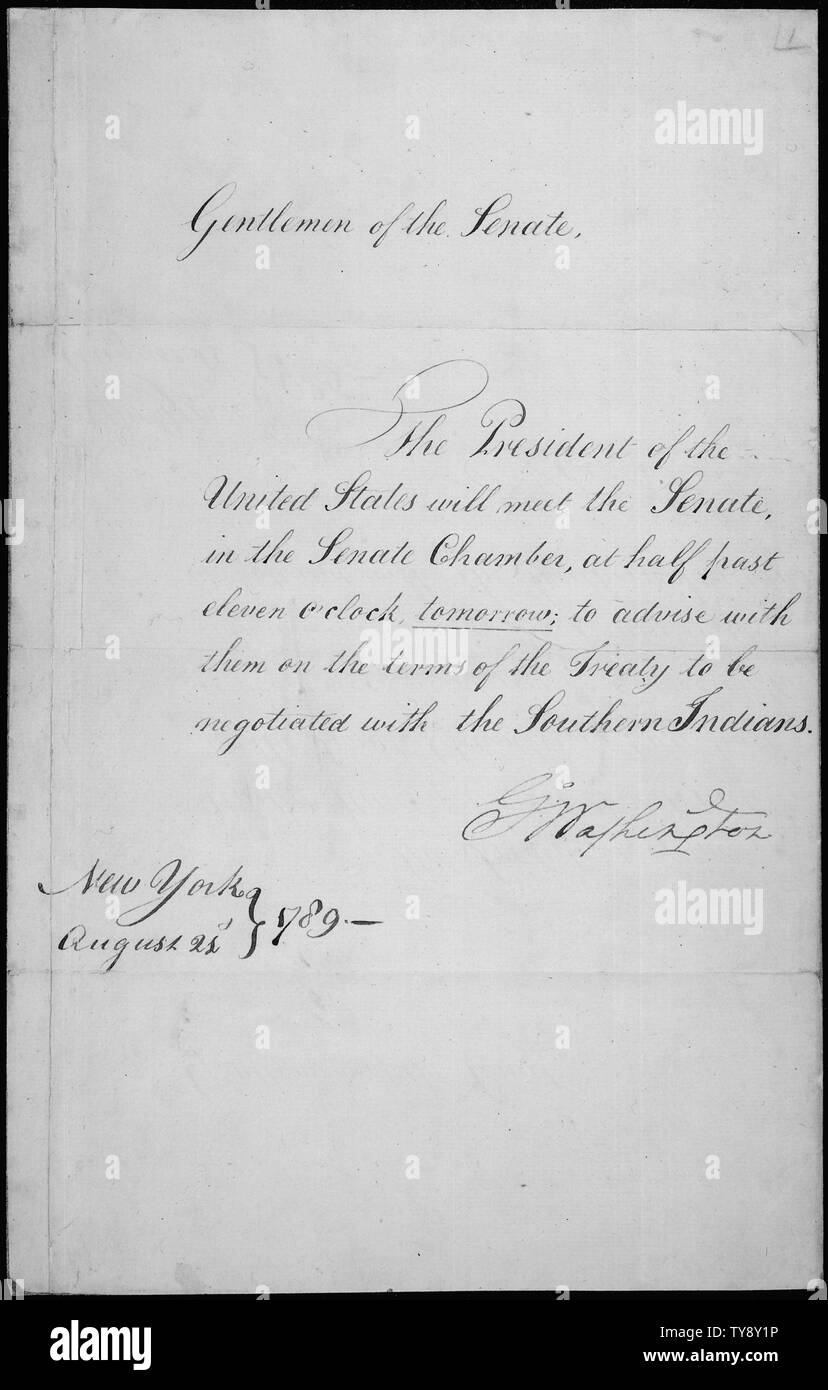 Gentlemen of the Senate,
The President of the
United States will meet the Senate,
in the Senate Chamber, at half past
eleven o'clock, tomorrow; to advise with
them on the terms of the Treaty to be
negotiated with the Southern Indians.
G. Washington
New York
August 21st } 1789.—
alamy
alamy
alamy
alamy
alamy
TY8Y1P
www.alamy.com